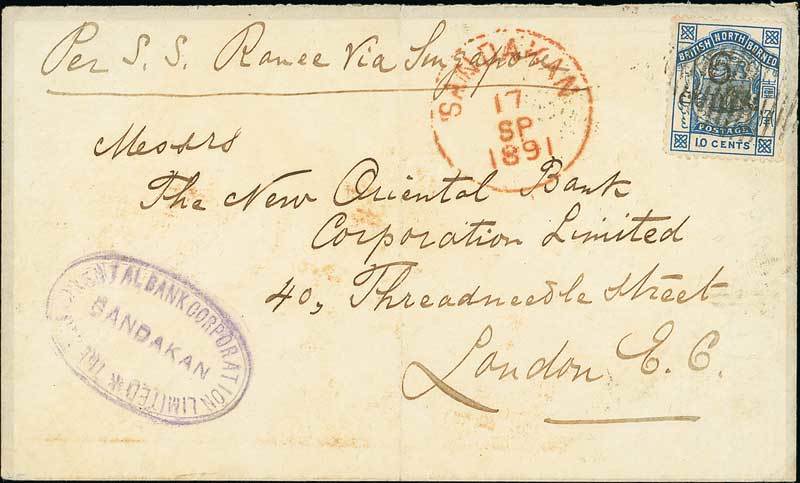 Per S. S. Ranee Via Singapore
SANDAKAN
17
SP
1891
BRITISH NORTH BORNEO
6
Cents
POSTAGE
10 CENTS
Messrs
The New Oriental Bank
Corporation Limited
40, Threadneedle Street
London E. C.
ORIENTAL BANK CORPORATION LIMITED
SANDAKAN